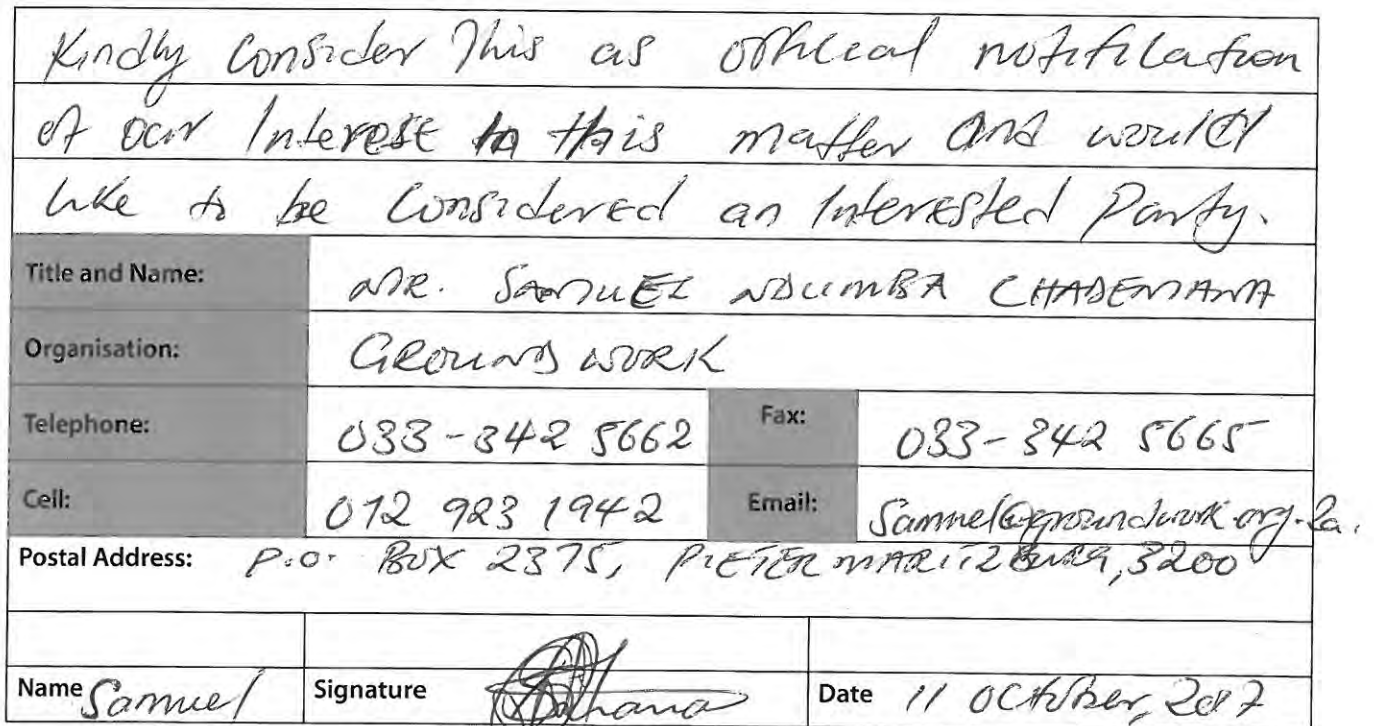 Kindly Consider This as official notification
of our Interest in this matter and would
like to be Considered an Interested Party.
Title and Name: MR. SAMUEL NDUMBA CHADEMANA
Organisation: GROUNDWORK
Telephone: 033-342 5662 Fax: 033-342 5665
Cell: 072 923 1942 Email: Samuel@groundwork.org.za.
Postal Address: P.O. BOX 2375, PIETERMARITZBURG, 3200
Name Samuel Signature Date 11 October, 2017